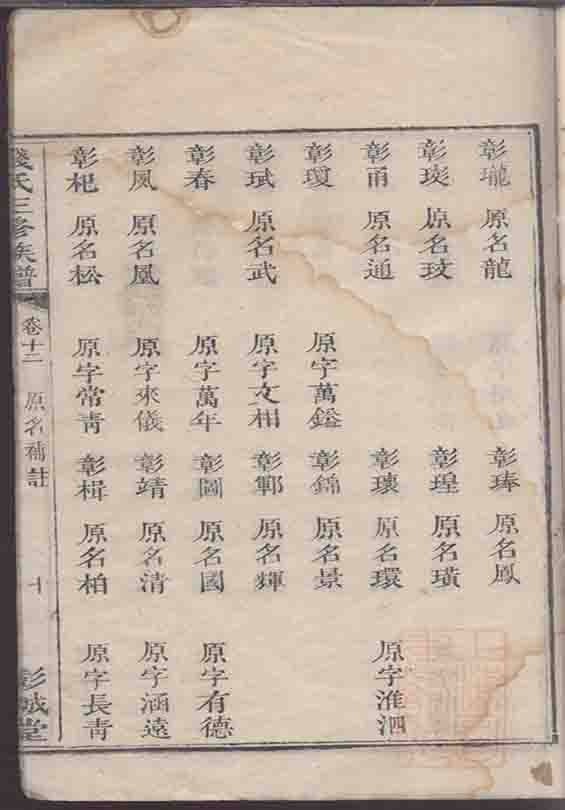 彰瓏 原名龍 彰琫 原名鳳
彰琰 原名玟 彰瑝 原名璜
彰甬 原名通 彰瓌 原名環 原字淮泗
彰瓊 原字萬鎰 彰錦 原名景
彰珷 原名武 原字文相 彰鄆 原名輝
彰春 原字萬年 彰圖 原名國 原字有德
彰風 原名凰 原字來儀 彰靖 原名清 原字涵遠
彰杞 原名松 原字常青 彰楫 原名柏 原字長青
錢氏三修族譜 卷十二 原名補註 十 彭城堂